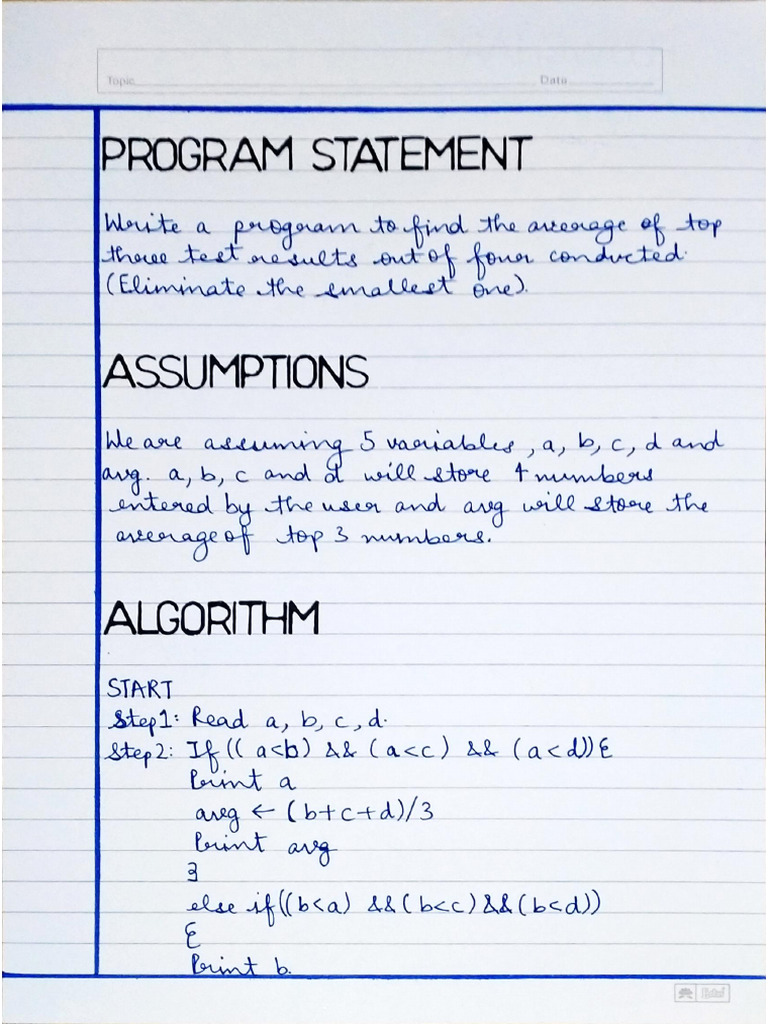 Topic Date
PROGRAM STATEMENT
Write a program to find the average of top
three test results out of four conducted.
(Eliminate the smallest one).
ASSUMPTIONS
We are assuming 5 variables, a, b, c, d and
avg. a, b, c and d will store 4 numbers
entered by the user and avg will store the
average of top 3 numbers.
ALGORITHM
START
Step1: Read a, b, c, d.
Step2: If (( a<b) && (a<c) && (a<d)) {
Print a
avg ← (b+c+d)/3
Print avg
}
else if((b<a) &&(b<c)&&(b<d))
{
Print b.